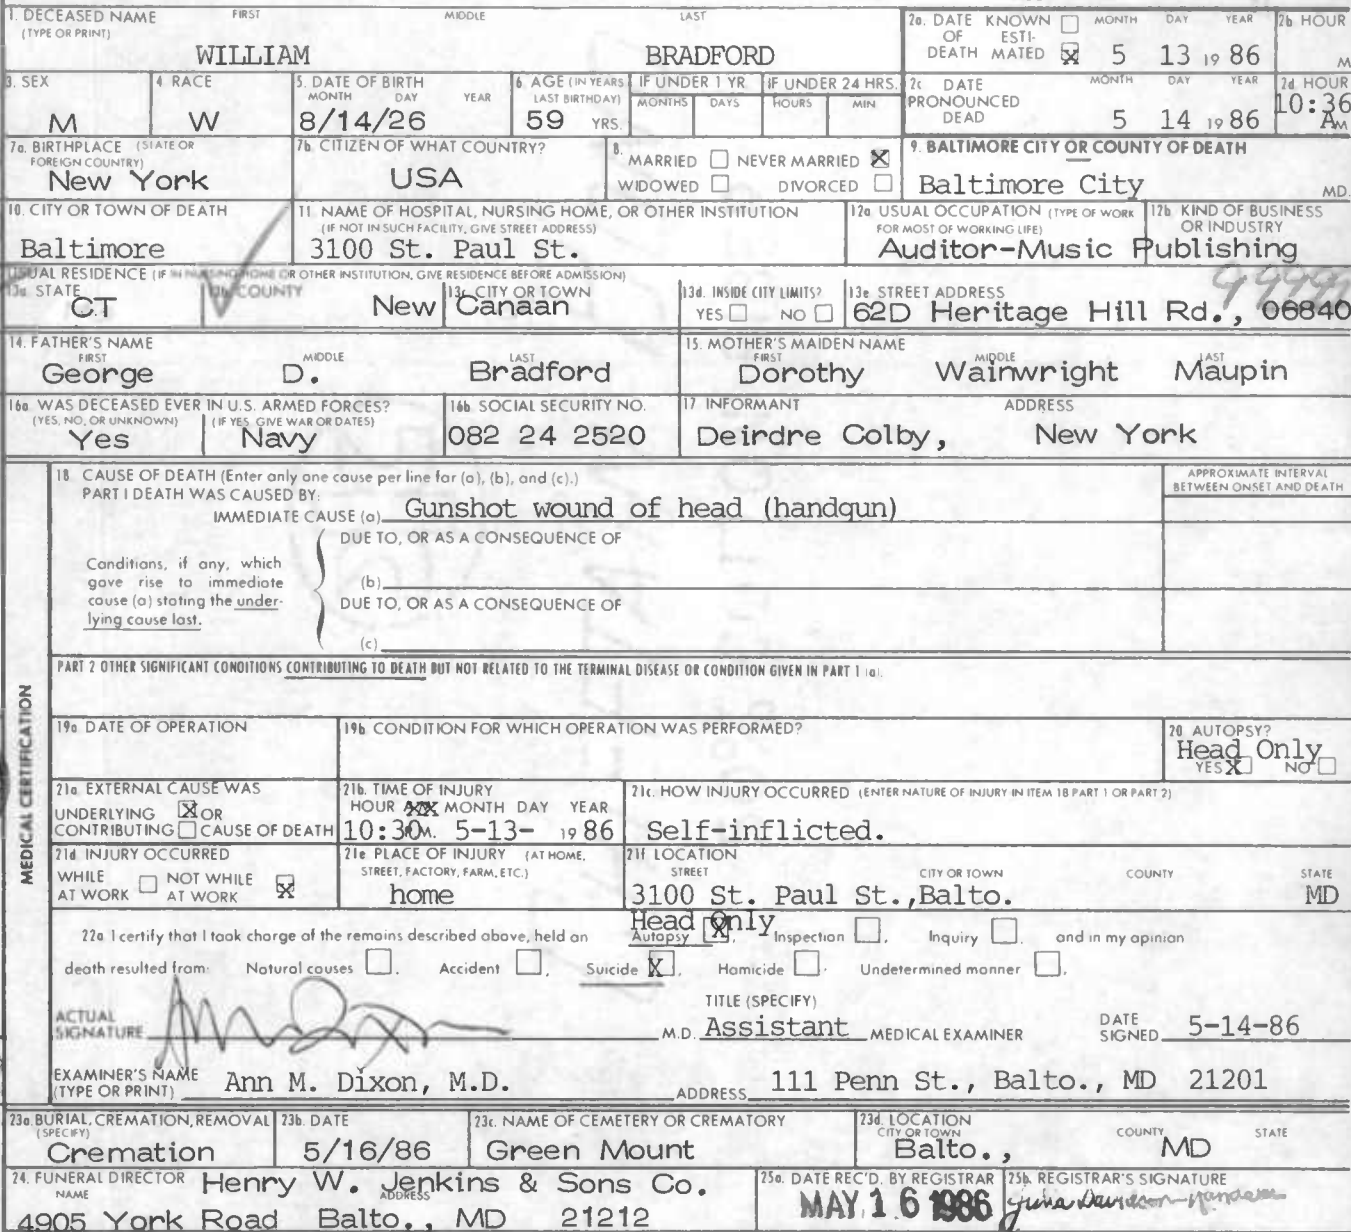 1. DECEASED NAME FIRST MIDDLE LAST
(TYPE OR PRINT)
WILLIAM BRADFORD
2a. DATE KNOWN OF ESTI- DEATH MATED X MONTH DAY YEAR
5 13 1986
2b HOUR
M
3. SEX
M
4 RACE
W
5. DATE OF BIRTH
MONTH DAY YEAR
8/14/26
6 AGE (IN YEARS LAST BIRTHDAY)
59 YRS.
IF UNDER 1 YR
MONTHS DAYS
IF UNDER 24 HRS.
HOURS MIN
2c DATE PRONOUNCED DEAD MONTH DAY YEAR
5 14 1986
2d HOUR
10:36 AM
7a. BIRTHPLACE (STATE OR FOREIGN COUNTRY)
New York
7b CITIZEN OF WHAT COUNTRY?
USA
8. MARRIED NEVER MARRIED X
WIDOWED DIVORCED
9. BALTIMORE CITY OR COUNTY OF DEATH
Baltimore City MD.
10. CITY OR TOWN OF DEATH
Baltimore
11 NAME OF HOSPITAL, NURSING HOME, OR OTHER INSTITUTION
(IF NOT IN SUCH FACILITY, GIVE STREET ADDRESS)
3100 St. Paul St.
12a USUAL OCCUPATION (TYPE OF WORK FOR MOST OF WORKING LIFE)
12b. KIND OF BUSINESS OR INDUSTRY
Auditor-Music Publishing
USUAL RESIDENCE (IF IN NURSING HOME OR OTHER INSTITUTION, GIVE RESIDENCE BEFORE ADMISSION)
13a STATE
CT
13b COUNTY
13c. CITY OR TOWN
New Canaan
13d. INSIDE CITY LIMITS?
YES NO
13e STREET ADDRESS
99999
62D Heritage Hill Rd., 06840
14. FATHER'S NAME
FIRST MIDDLE LAST
George D. Bradford
15. MOTHER'S MAIDEN NAME
FIRST MIDDLE LAST
Dorothy Wainwright Maupin
16a WAS DECEASED EVER IN U.S. ARMED FORCES?
(YES, NO, OR UNKNOWN) (IF YES, GIVE WAR OR DATES)
Yes Navy
16b SOCIAL SECURITY NO.
082 24 2520
17 INFORMANT ADDRESS
Deirdre Colby, New York
MEDICAL CERTIFICATION
18 CAUSE OF DEATH (Enter only one cause per line for (a), (b), and (c).)
PART I DEATH WAS CAUSED BY:
IMMEDIATE CAUSE (a) Gunshot wound of head (handgun)
APPROXIMATE INTERVAL
BETWEEN ONSET AND DEATH
DUE TO, OR AS A CONSEQUENCE OF
Conditions, if any, which
gave rise to immediate
cause (a) stating the under-
lying cause last.
(b)
DUE TO, OR AS A CONSEQUENCE OF
(c)
PART 2 OTHER SIGNIFICANT CONDITIONS CONTRIBUTING TO DEATH BUT NOT RELATED TO THE TERMINAL DISEASE OR CONDITION GIVEN IN PART 1 (a).
19a DATE OF OPERATION
19b CONDITION FOR WHICH OPERATION WAS PERFORMED?
20 AUTOPSY?
Head Only
YES X NO
21a EXTERNAL CAUSE WAS
UNDERLYING X OR
CONTRIBUTING CAUSE OF DEATH
21b. TIME OF INJURY
HOUR MONTH DAY YEAR
10:30 M. 5-13- 1986
21c. HOW INJURY OCCURRED (ENTER NATURE OF INJURY IN ITEM 18 PART 1 OR PART 2)
Self-inflicted.
21d INJURY OCCURRED
WHILE AT WORK NOT WHILE AT WORK X
21e PLACE OF INJURY (AT HOME, STREET, FACTORY, FARM, ETC.)
home
21f LOCATION
STREET CITY OR TOWN COUNTY STATE
3100 St. Paul St., Balto. MD
Head Only
22a I certify that I took charge of the remains described above, held an Autopsy X, Inspection , Inquiry . and in my opinion
death resulted from: Natural causes , Accident , Suicide X, Homicide . Undetermined manner ,
ACTUAL SIGNATURE
M.D.
TITLE (SPECIFY)
Assistant MEDICAL EXAMINER
DATE SIGNED 5-14-86
EXAMINER'S NAME
(TYPE OR PRINT) Ann M. Dixon, M.D.
ADDRESS 111 Penn St., Balto., MD 21201
23a. BURIAL, CREMATION, REMOVAL
(SPECIFY)
Cremation
23b. DATE
5/16/86
23c. NAME OF CEMETERY OR CREMATORY
Green Mount
23d. LOCATION
CITY OR TOWN COUNTY STATE
Balto., MD
24. FUNERAL DIRECTOR
NAME ADDRESS
Henry W. Jenkins & Sons Co.
4905 York Road Balto., MD 21212
25a. DATE REC'D. BY REGISTRAR
MAY 16 1986
25b. REGISTRAR'S SIGNATURE
Julia Davidson-